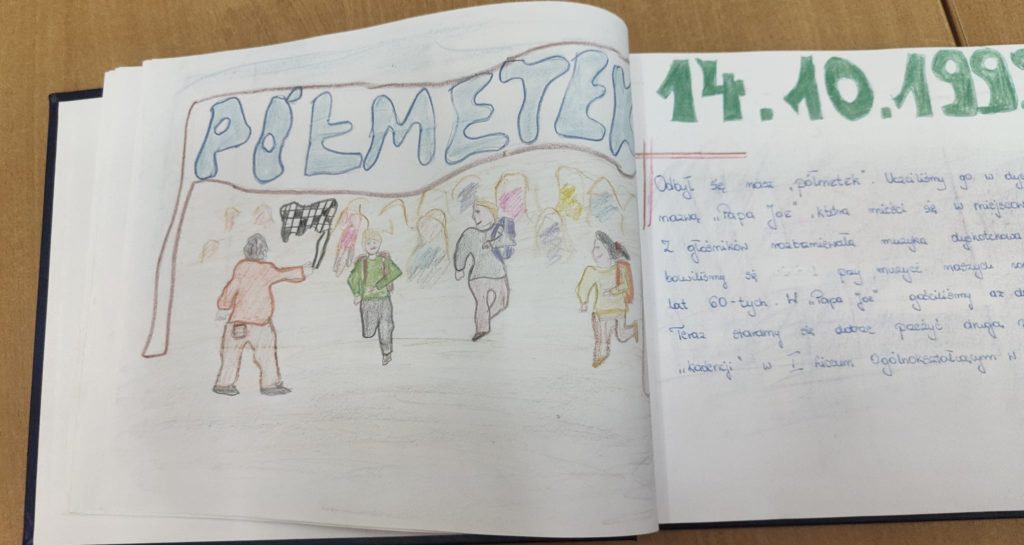 PÓŁMETEK
14.10.199
Odbył się nasz „półmetek". Uczciliśmy go w
nazwą „Papa Joe", która mieści się w
Z głośników rozbrzmiewała muzyka dyskotekowa
bawiliśmy się przy muzyce naszych
lat 60-tych. W „Papa Joe" gościliśmy aż do
Teraz staramy się dobrze przeżyć drugą
„kadencji" w I Liceum Ogólnokształcącym w